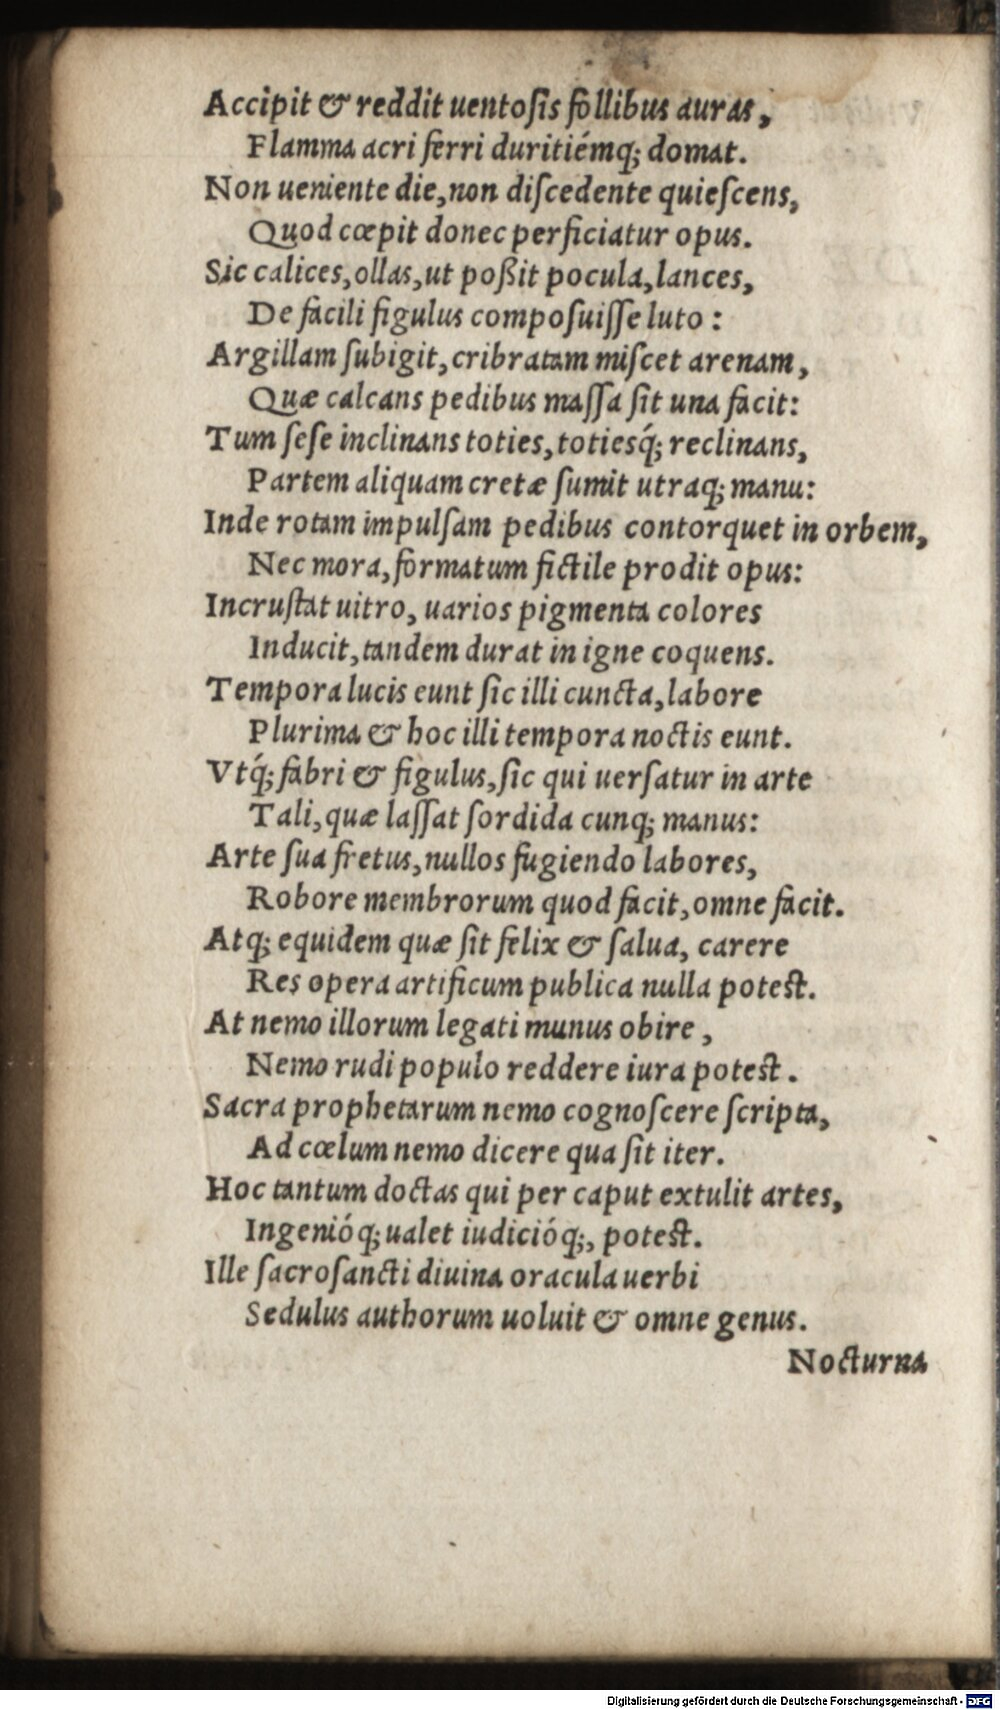 Accipit & reddit uentoſis follibus auras,
Flamma acri ferri duritiémq; domat.
Non ueniente die, non diſcedente quieſcens,
Quod cœpit donec perficiatur opus.
Sic calices, ollas, ut poßit pocula, lances,
De facili figulus compoſuiſſe luto :
Argillam ſubigit, cribratam miſcet arenam,
Quæ calcans pedibus maſſa ſit una facit:
Tum ſeſe inclinans toties, totiesq́; reclinans,
Partem aliquam cretæ ſumit utraq; manu:
Inde rotam impulſam pedibus contorquet in orbem,
Nec mora, formatum fictile prodit opus:
Incruſtat uitro, uarios pigmenta colores
Inducit, tandem durat in igne coquens.
Tempora lucis eunt ſic illi cuncta, labore
Plurima & hoc illi tempora noctis eunt.
Vtq́; fabri & figulus, ſic qui uerſatur in arte
Tali, quæ laſſat ſordida cunq; manus:
Arte ſua fretus, nullos fugiendo labores,
Robore membrorum quod facit, omne facit.
Atq; equidem quæ ſit felix & ſalua, carere
Res opera artificum publica nulla poteſt.
At nemo illorum legati munus obire ,
Nemo rudi populo reddere iura poteſt .
Sacra prophetarum nemo cognoſcere ſcripta,
Ad cœlum nemo dicere qua ſit iter.
Hoc tantum doctas qui per caput extulit artes,
Ingenióq; ualet iudicióq;, poteſt.
Ille ſacroſancti diuina oracula uerbi
Sedulus authorum uoluit & omne genus.
Nocturna
Digitalisierung gefördert durch die Deutsche Forschungsgemeinschaft - DFG